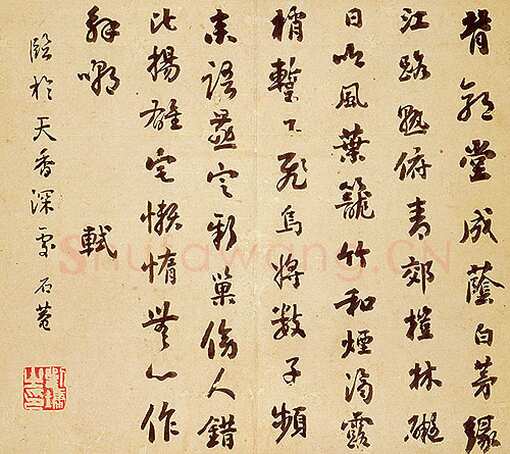 背郭堂成蔭白茅緣
江路熟俯青郊榿林礙
日吟風葉籠竹和煙滴露
梢暫下飛烏將數子頻
來語燕定新巢傍人錯
比揚雄宅懶惰無心作
解嘲 軾
臨於天香深處 石菴
劉墉之印
Shufawang.CN